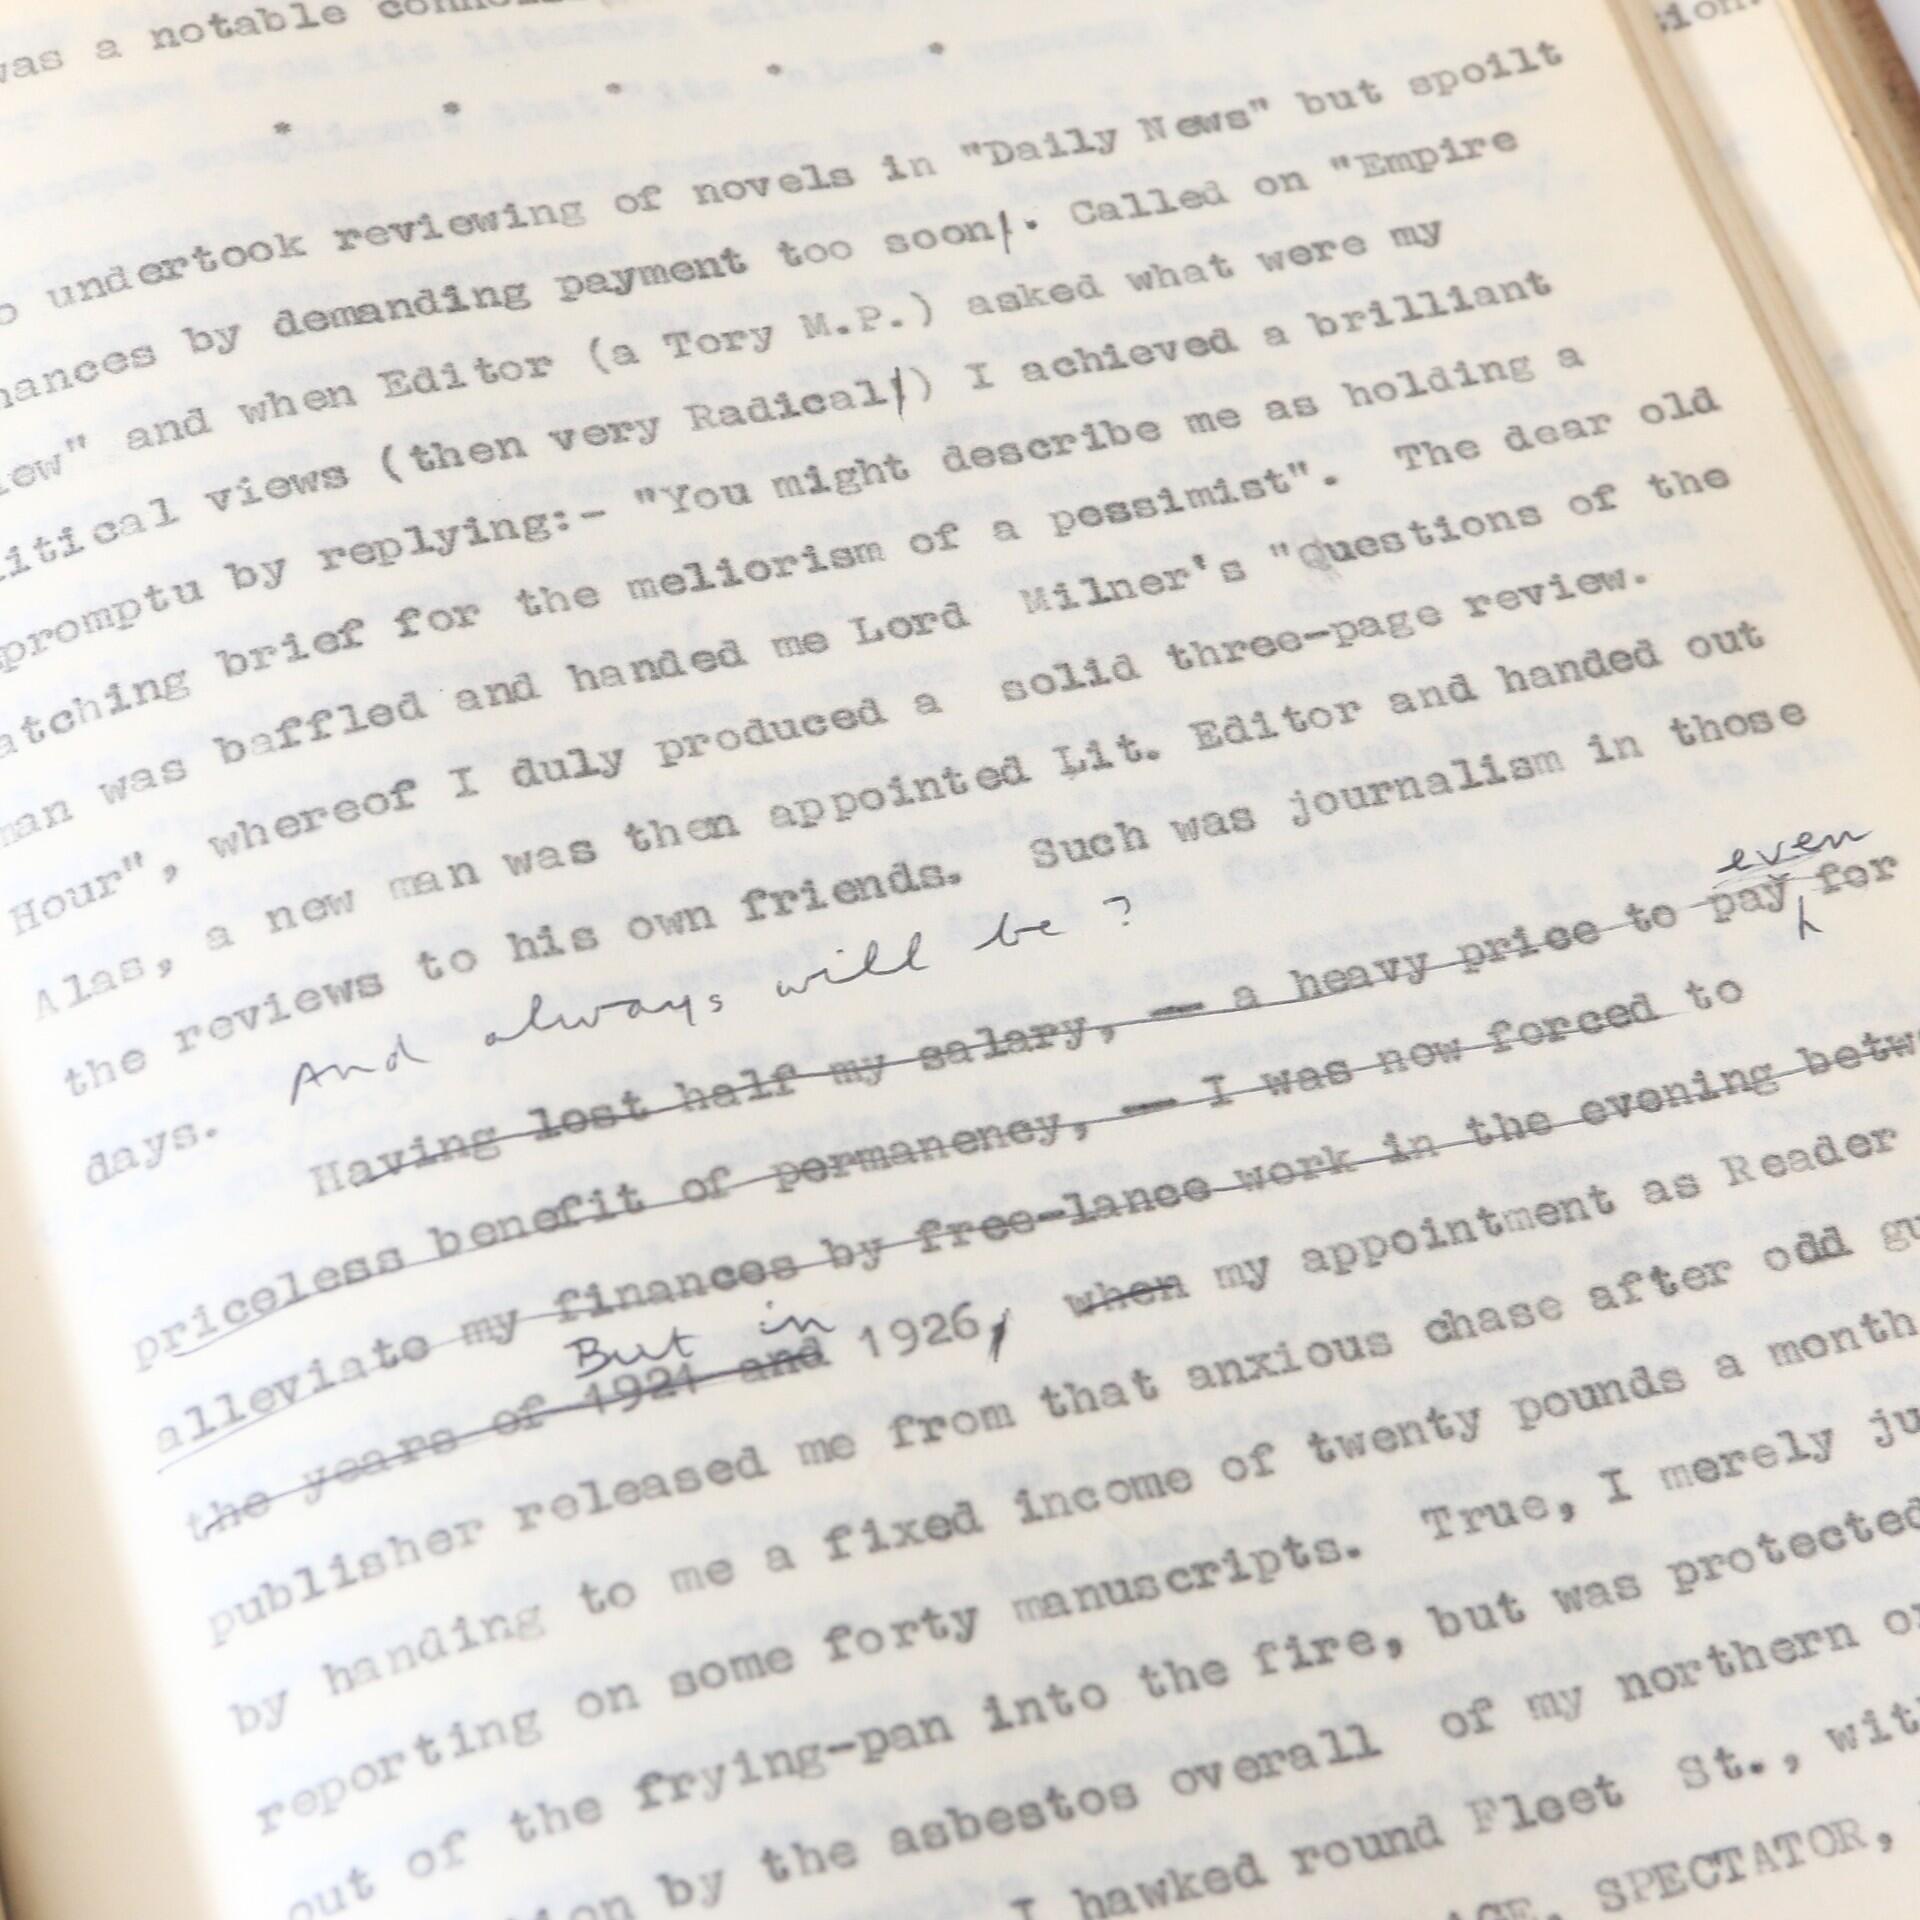 was a notable
* * * * *
undertook reviewing of novels in "Daily News" but spoilt
hances by demanding payment too soon. Called on "Empire
iew" and when Editor (a Tory M.P.) asked what were my
itical views (then very Radical) I achieved a brilliant
promptu by replying:- "You might describe me as holding a
atching brief for the meliorism of a pessimist". The dear old
man was baffled and handed me Lord Milner's "Questions of the
Hour", whereof I duly produced a solid three-page review.
Alas, a new man was then appointed Lit. Editor and handed out
the reviews to his own friends. Such was journalism in those
days. And always will be ?
even
Having lost half my salary, — a heavy price to pay for
priceless benefit of permanency, — I was now forced to
alleviate my finances by free-lance work in the evening betw
But in
the years of 1921 and 1926, when my appointment as Reader
publisher released me from that anxious chase after odd gu
by handing to me a fixed income of twenty pounds a month
reporting on some forty manuscripts. True, I merely ju
out of the frying-pan into the fire, but was protected
ion by the asbestos overall of my northern or
I hawked round Fleet St., wit
AGE, SPECTATOR,
ion.